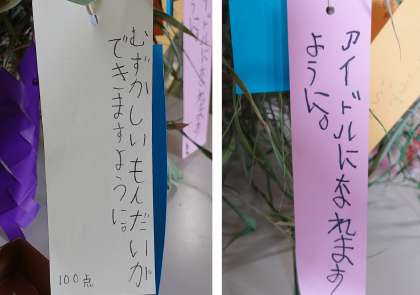 むずかしいもんだいが
できますように。
100点
アイドルになれます
ように。